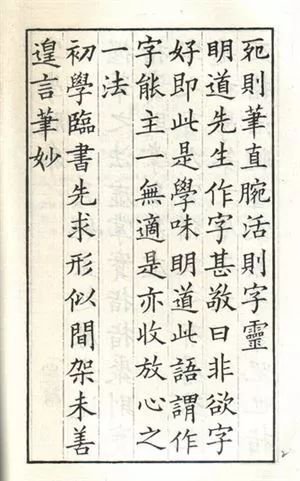 死則筆直腕活則字靈
明道先生作字甚敬曰非欲字
好即此是學味明道此語謂作
字能主一無適是亦收放心之
一法
初學臨書先求形似間架未善
遑言筆妙